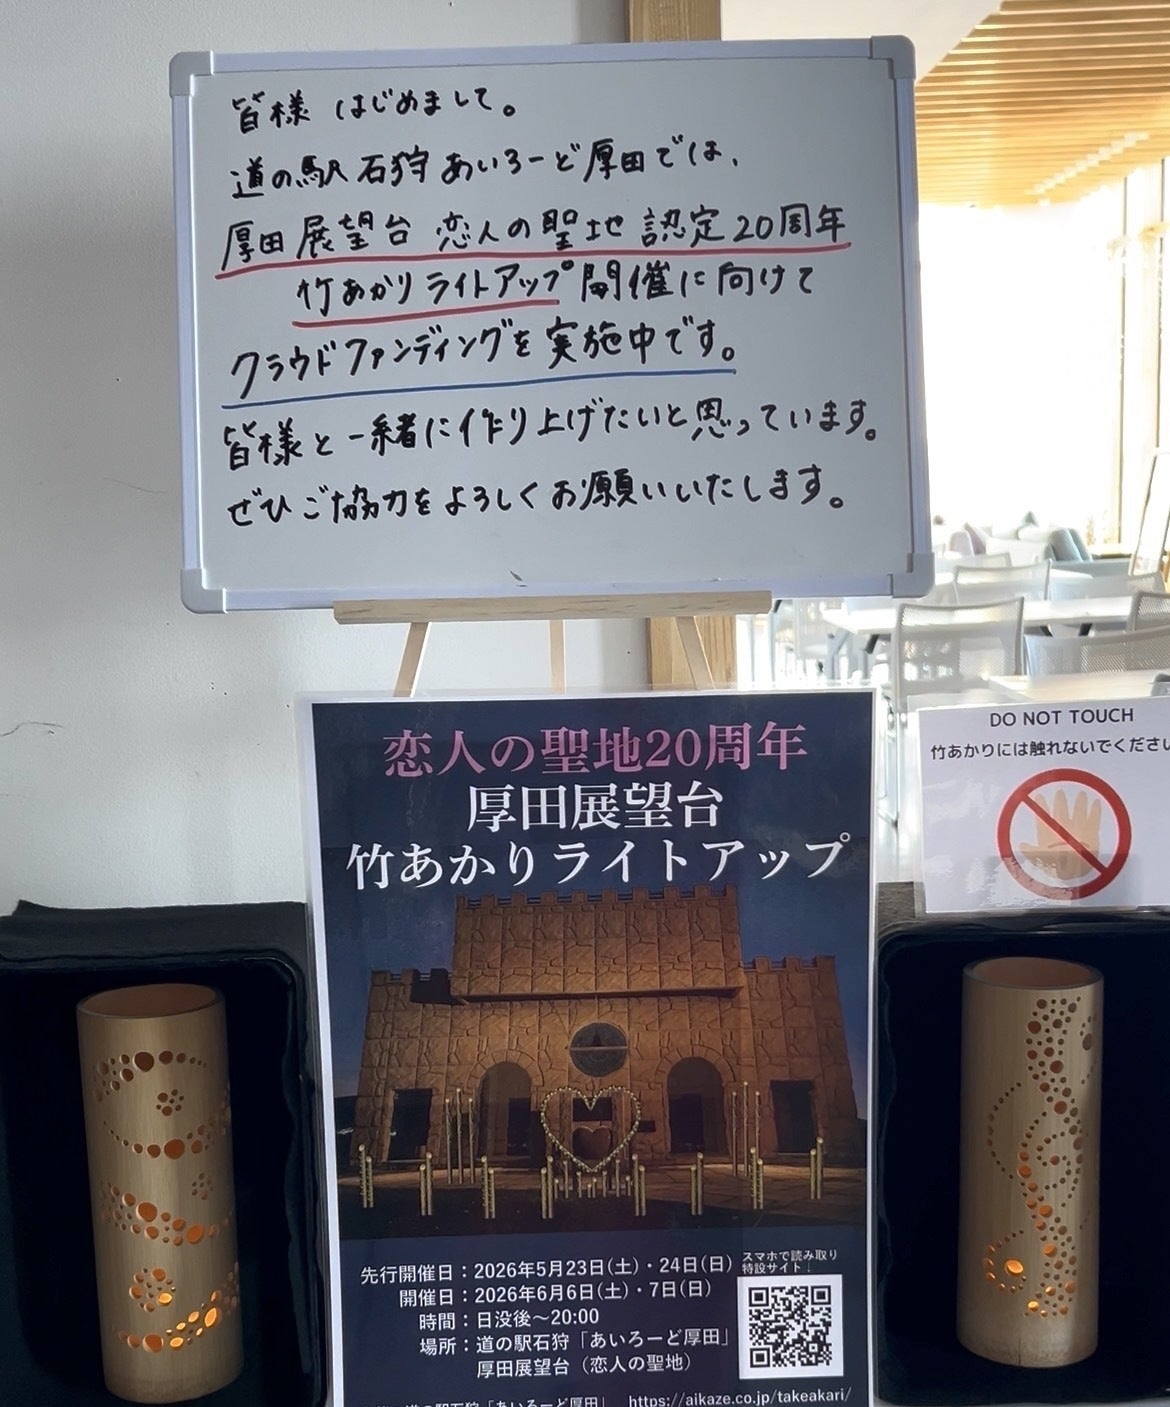 皆様 はじめまして。
道の駅石狩あいろーど厚田では、
厚田展望台 恋人の聖地 認定20周年
竹あかりライトアップ 開催に向けて
クラウドファンディングを実施中です。
皆様と一緒に作り上げたいと思っています。
ぜひご協力をよろしくお願いいたします。
恋人の聖地20周年
厚田展望台
竹あかりライトアップ
先行開催日:2026年5月23日(土)・24日(日)
開催日:2026年6月6日(土)・7日(日)
時間:日没後~20:00
場所:道の駅石狩「あいろーど厚田」
厚田展望台(恋人の聖地)
スマホで読み取り
特設サイト↓
道の駅石狩「あいろーど厚田」 https://aikaze.co.jp/takeakari/
DO NOT TOUCH
竹あかりには触れないでください